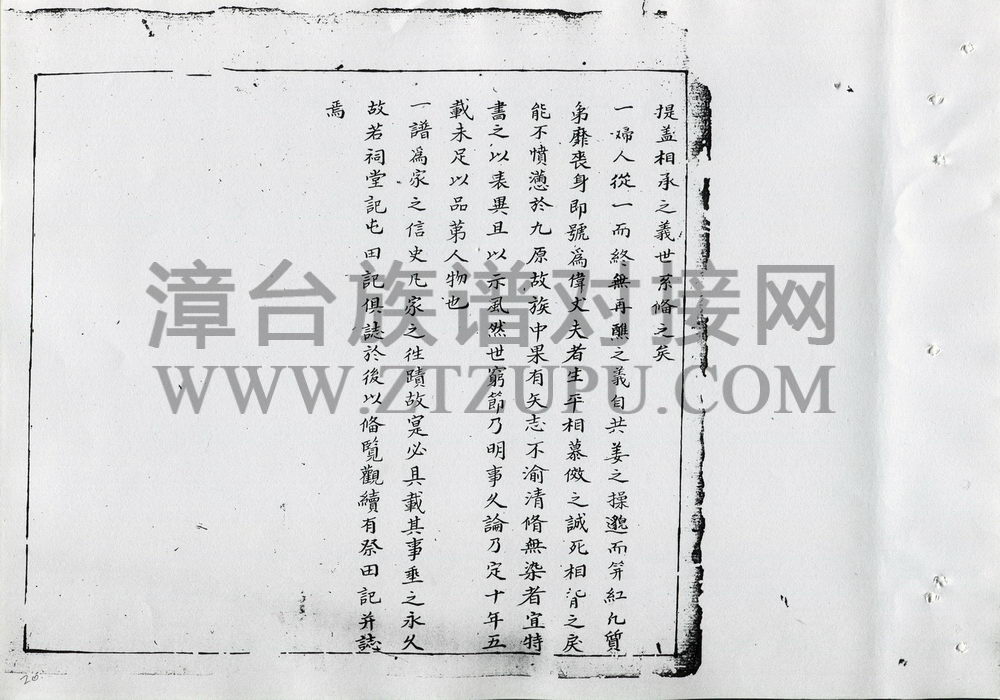 提盖相承之義世系偹之矣
一婦人從一而終無再醮之義自共姜之操邈而笄紅凢質
弟靡喪身即號爲偉丈夫者生平相慕傚之誠死相背之戾
能不憤懣於九原故族中果有矢志不渝清脩無染者宜特
書之以表異且以示風然世窮節乃明事久論乃定十年五
載未足以品第人物也
一譜爲家之信史凡家之徃蹟故寔必具載其事垂之永久
故若祠堂記屯田記俱誌於後以偹覧觀續有祭田記并誌
焉
漳台族谱对接网
WWW.ZTZUPU.COM
20